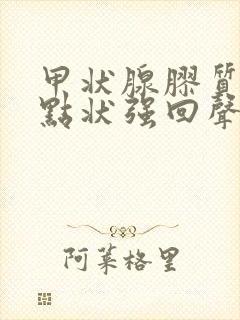 甲状腺膠質
點状强回聲
阿莱格里